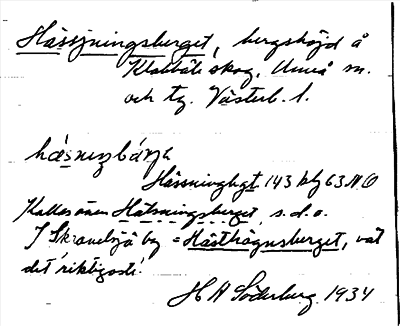 Hässjningsberget, bergshöjd å
Klabböle skog, Umeå sn.
och tg. Västerb. l.
Hässninghgt 143 blg 63 N O
Kallas även Hätsningsberget, s.d.o.
I Skravelsjö by = Hästhögnsberget, vat
det riktigaste!
H A Söderberg 1934